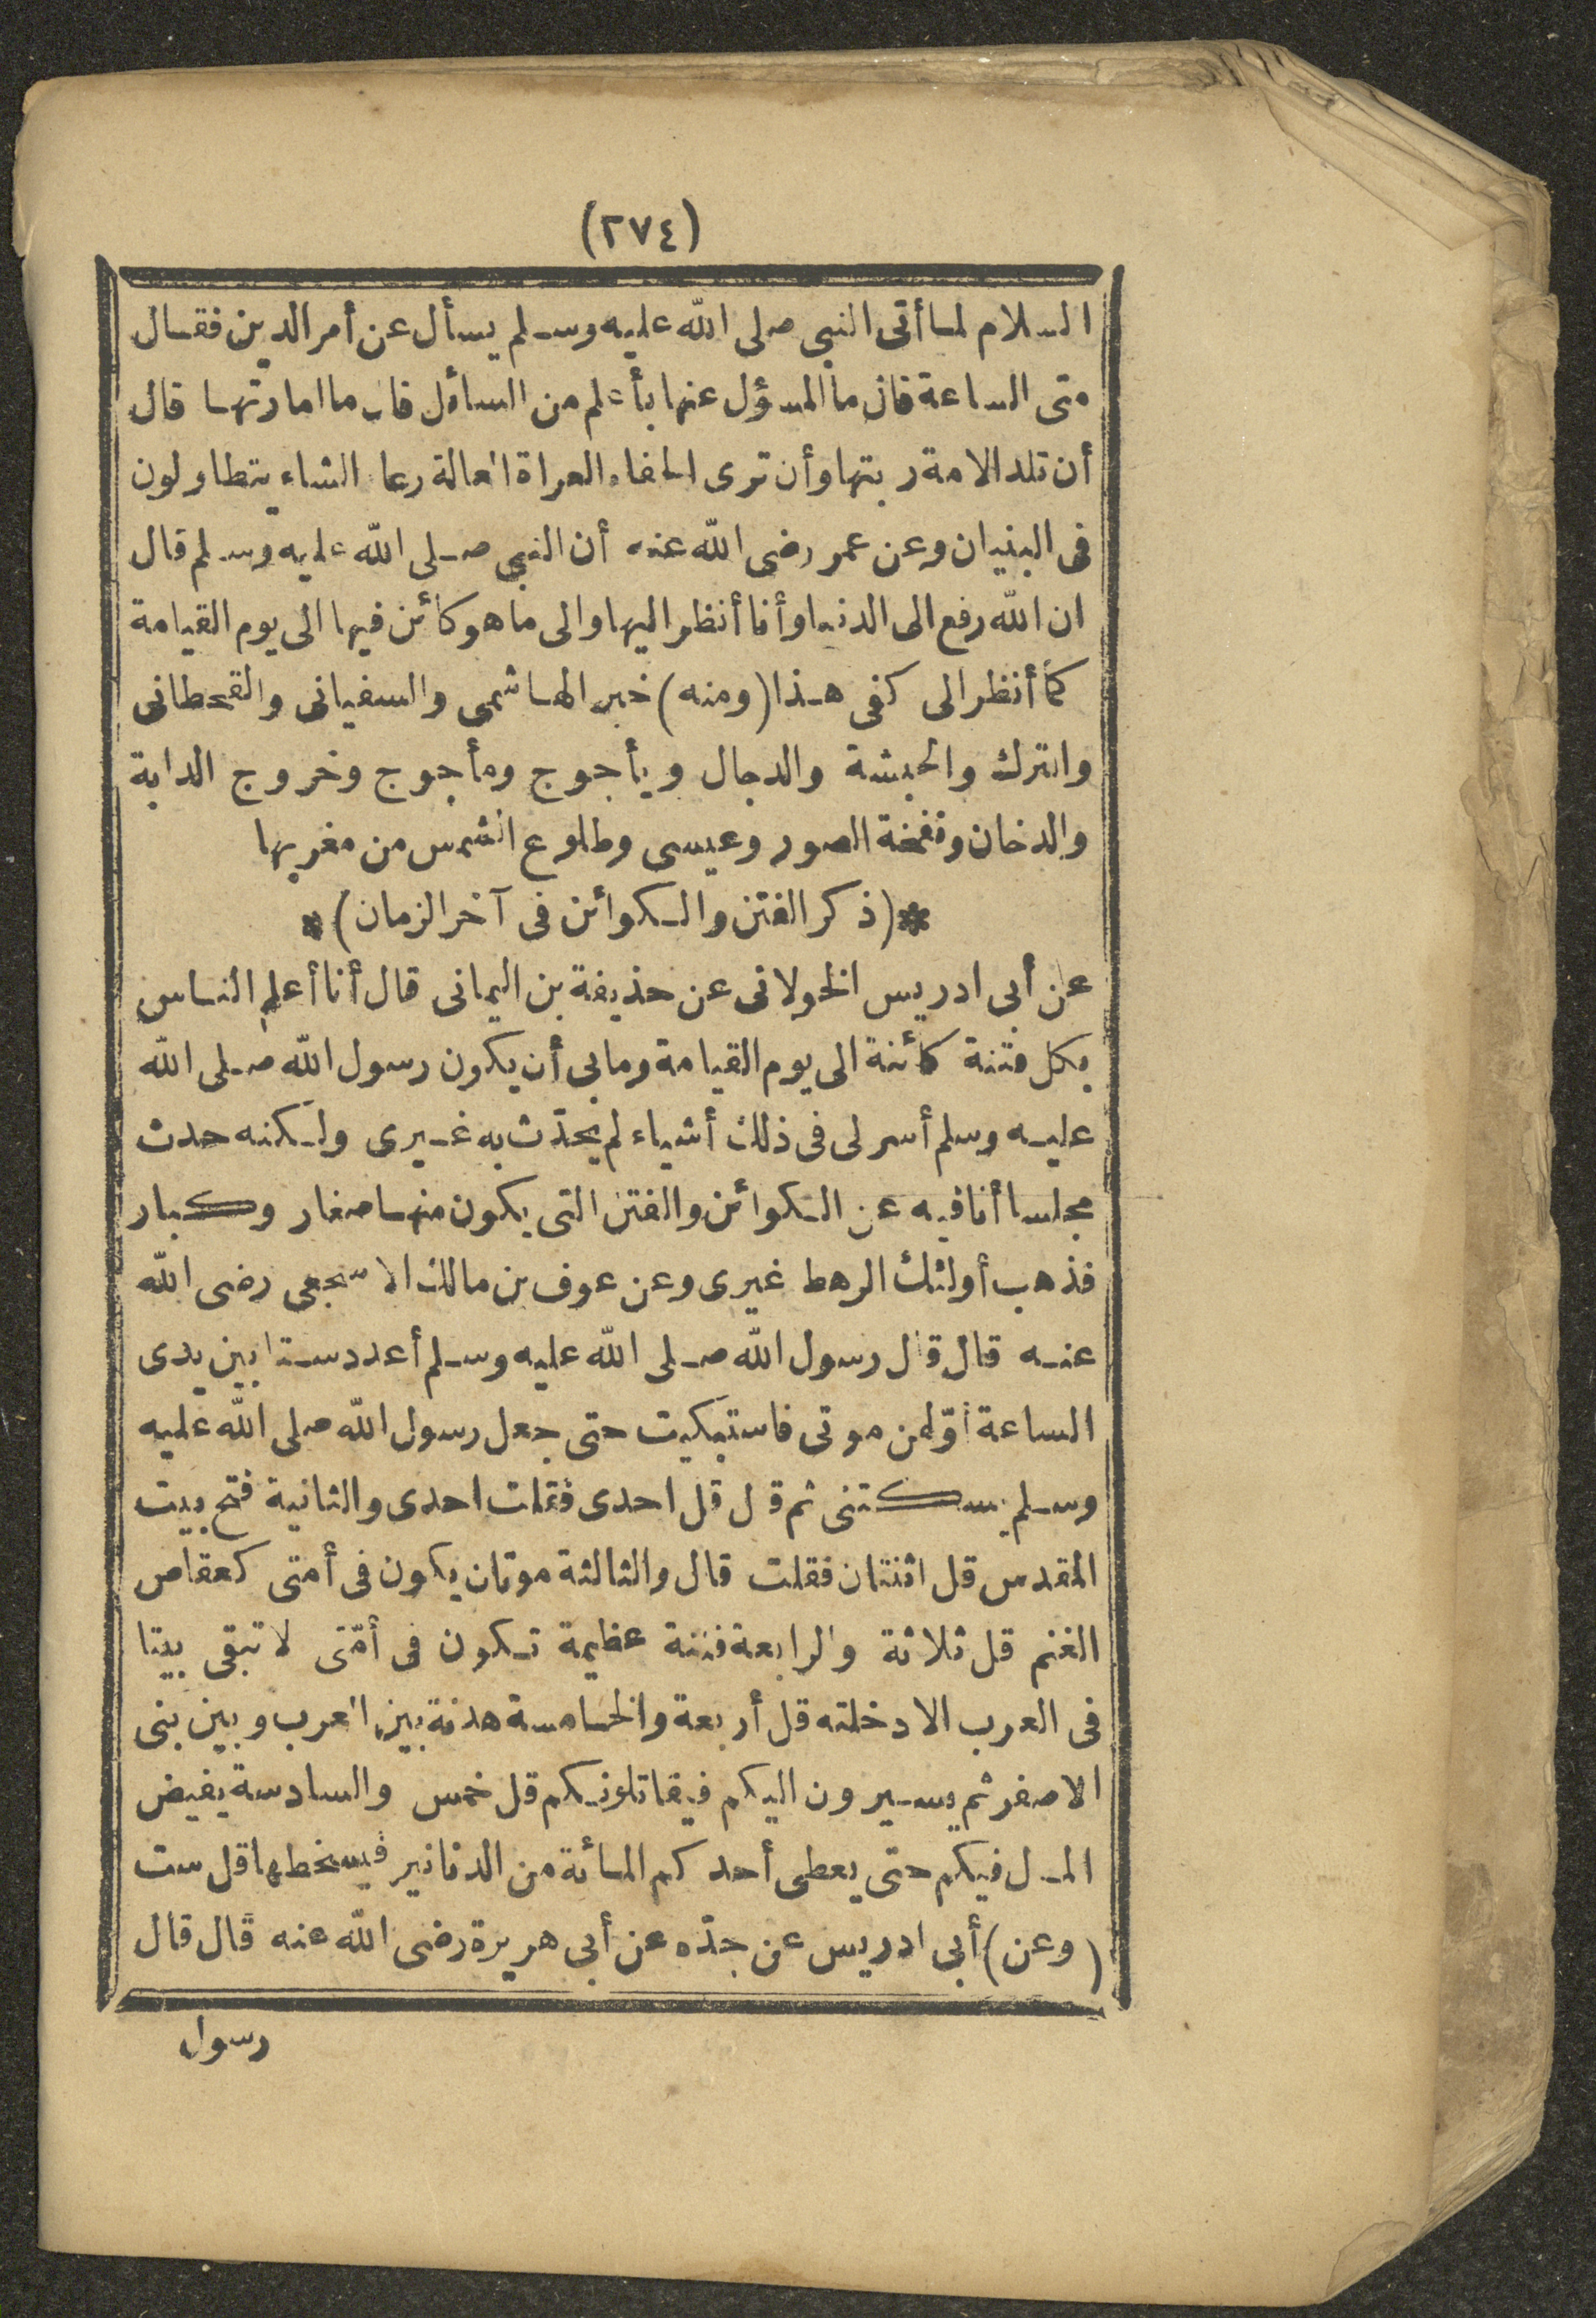 (٢٧٤)
السلام لما أتى النبى صلى الله عليه وسلم يسأل عن أمر الدين فقال
متى الساعة قال ما المسؤل عنها بأعلم من السائل قال ما امارتها قال
أن تلد الامة ربتها وأن ترى الحفاء العراة العالة رعا الشاء يتطاولون
فى البنيان وعن عمر رضى الله عنه أن النبى صلى الله عليه وسلم قال
ان الله رفع الى الدنيا وأنا أنظر اليها والى ما هو كائن فيها الى يوم القيامة
كما أنظر الى كفى هذا (ومنه) خبر الهاشمى والسفيانى والقحطانى
والترك والحبشة والدجال ويأجوج ومأجوج وخروج الدابة
والدخان ونفخة الصور وعيسى وطلوع الشمس من مغربها
*(ذكر الفتن والكوائن فى آخر الزمان)*
عن أبى ادريس الخولانى عن حذيفة بن اليمانى قال أنا أعلم الناس
بكل فتنة كائنة الى يوم القيامة وما بى أن يكون رسول الله صلى الله
عليه وسلم أسر لى فى ذلك أشياء لم يحدّث به غيرى ولكنه حدث
مجلسا أنا فيه عن الكوائن والفتن التى يكون منها صغار وكبار
فذهب أولئك الرهط غيرى وعن عوف بن مالك الاشجعى رضى الله
عنه قال قال رسول الله صلى الله عليه وسلم أعدد ستا بين يدى
الساعة أوّلهن موتى فاستبكيت حتى جعل رسول الله صلى الله عليه
وسلم يسكتنى ثم قال قل احدى فقلت احدى والثانية فتح بيت
المقدس قل اثنتان فقلت قال والثالثة موتان يكون فى أمتى كعقاص
الغنم قل ثلاثة والرابعة فتنة عظيمة تكون فى أمّتى لا تبقى بيتا
فى العرب الا دخلته قل أربعة والخامسة هدنة بين العرب وبين بنى
الاصفر ثم يسيرون اليكم فيقاتلونكم قل خمس والسادسة يفيض
المال فيكم حتى يعطى أحدكم المائة من الدنانير فيسخطها قل ست
(وعن) أبى ادريس عن جدّه عن أبى هريرة رضى الله عنه قال قال
رسول